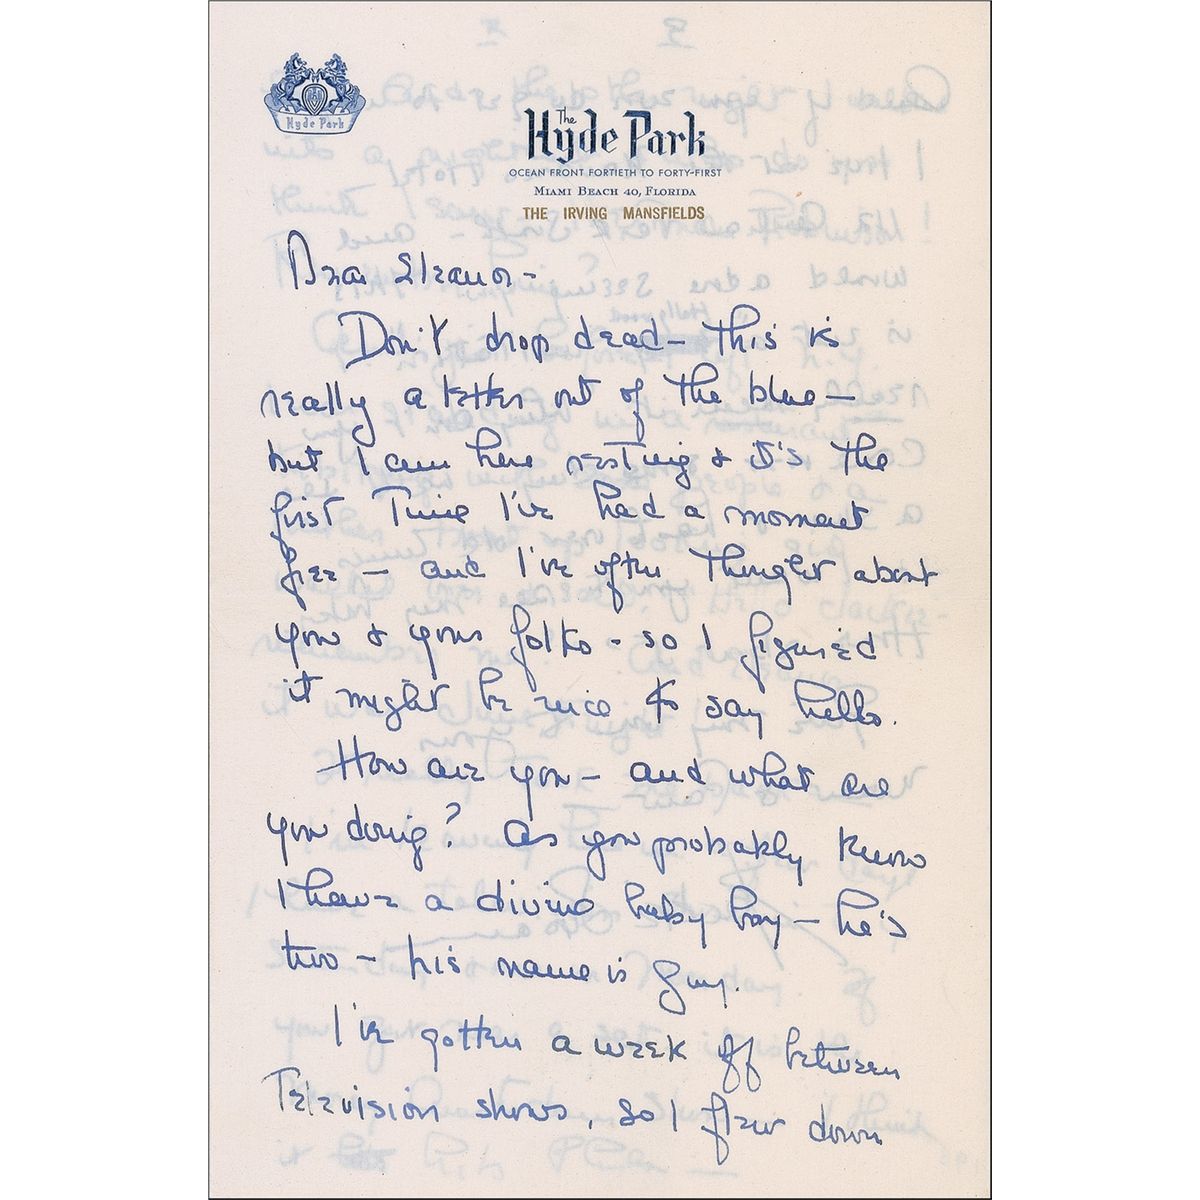 Hyde Park
The
Hyde Park
OCEAN FRONT FORTIETH TO FORTY-FIRST
MIAMI BEACH 40, FLORIDA
THE IRVING MANSFIELDS
Dear Eleanor -
Don't drop dead - this is
really a letter out of the blue -
but I am here resting & it's the
first time I've had a moment
free - and I've often thought about
you & your folks - so I figured
it might be nice to say hello.
How are you - and what are
you doing? As you probably know
I have a divine baby boy - he's
two - his name is Guy.
I've gotten a week off between
Television shows, so I flew down